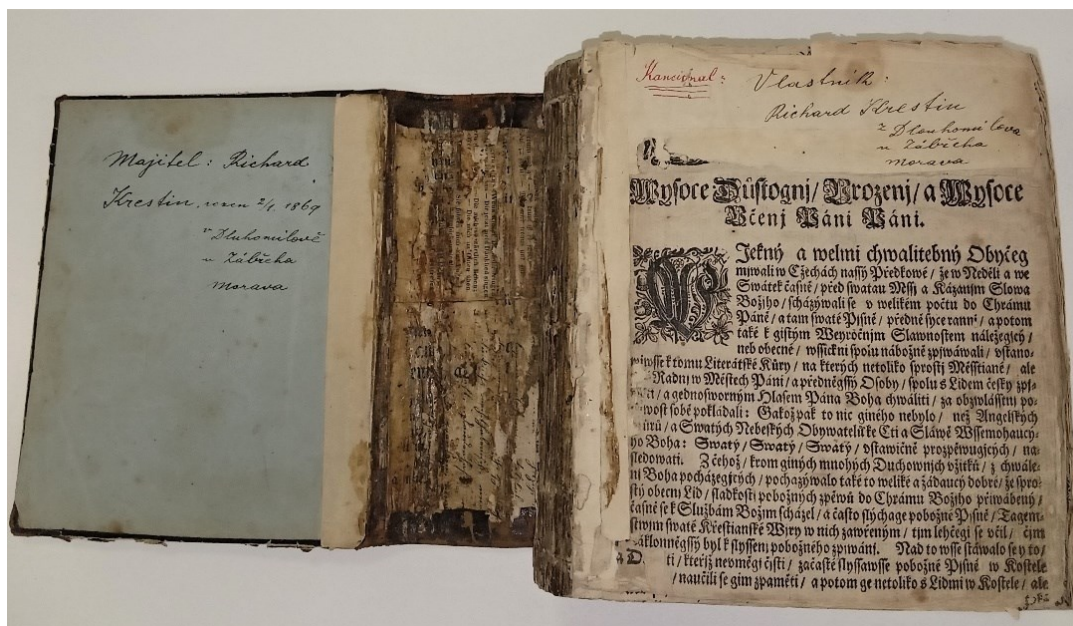 Majitel: Richard
Krestin, rozen 2/1. 1869
v Dluhomilově
u Zábřeha
Morava
Kancional:
Vlastník:
Richard Krestin
z Dlouhomilova
u Zábřeha
Morava
Wysoce Důstognj / Vrozenj / a Wysoce
Včenj Páni Páni.
Pěkný a welmi chwalitebný Obyčeg
mjwali w Cžechách nassý Předkowé / že w Neděli a we
Swátek časně / před swatau Mssj a Kázanjm Slowa
Božjho / scházýwali se v welikém počtu do Chrámu
Páně / a tam swaté Pjsně / předně syce rannj / a potom
také k gistým Weyročnjm Slawnostem náležegjcý /
neb obecné / wssickni spolu nábožně zpjwáwali / vstano-
wiwsse k tomu Literátské Kůry / na kterých netoliko sprostj Měsstiané / ale
Radnj w Městech Páni / a předněgssý Osoby / spolu s Lidem česky zpj-
a gednoswornym Hlasem Pána Boha chwáliti / za obzwlásstnj po-
wost sobě pokládali: Gakož pak to nic giného nebylo / než Angelských
ůrů / a Swatých Nebeských Obywatelů ke Cti a Sláwě Wssemohaucý-
ho Boha: Swatý / Swatý / Swatý / vstawičně prozpěwugjcých / ná-
sledowati. Z čehož / krom giných mnohých Duchownjch vžitků / z chwále-
nj Boha pocházegjcých / pocházýwalo také to weliké a žádaucý dobré / že spro-
stý obecnj Lid / sladkostj pobožných zpěwů do Chrámu Božjho přiwábený /
časně se k Službám Božjm scházel / a často slýchage pobožné Pjsně / Tagem-
stwjm swaté Křestianské Wjry w nich zawřeným / tjm lehčegi se včil / čjm
náklonněgssý byl k slyssenj pobožného zpjwánj. Nad to wsse stáwalo se y to /
ti / kteřjž nevměgj čjsti / začasté slyssawsse pobožné Pjsně w Kostele
/ naučili se gim zpaměti / a potom ge netoliko s Lidmi w Kostele / ale